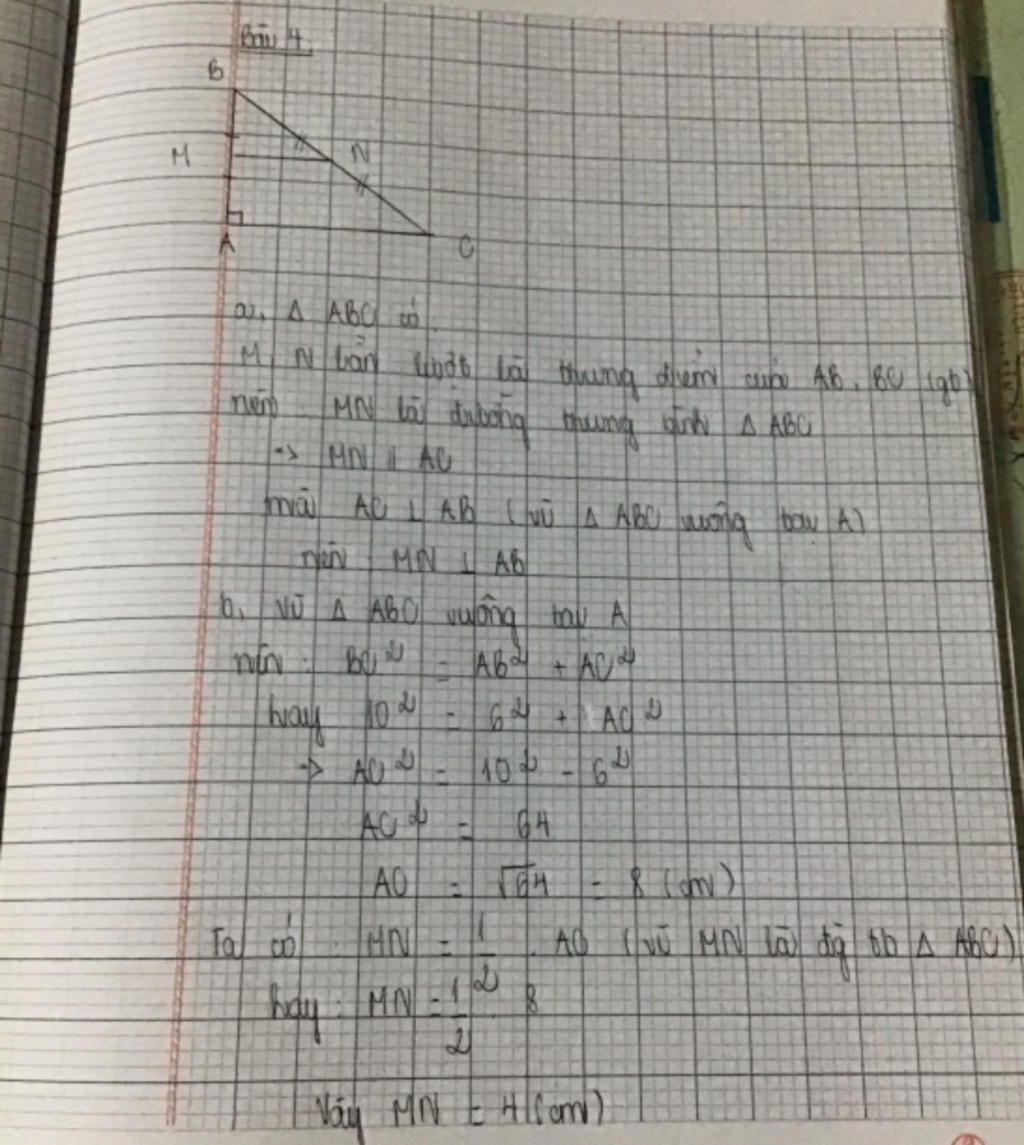 Bài 4.
B
M
N
A
C
a, Δ ABC có
M, N lần lượt là trung điểm của AB, BC (gt)
nên : MN là đường trung bình Δ ABC
-> MN // AC
mà AC ⊥ AB (vì Δ ABC vuông tại A)
nên : MN ⊥ AB
b, Vì Δ ABC vuông tại A
nên : BC² = AB² + AC²
hay 10² = 6² + AC²
-> AC² = 10² - 6²
AC² = 64
AC = √64 = 8 (cm)
Ta có : MN = 1/2 . AC (vì MN là đg tb Δ ABC)
hay : MN = 1/2 . 8
Vậy MN = 4 (cm)